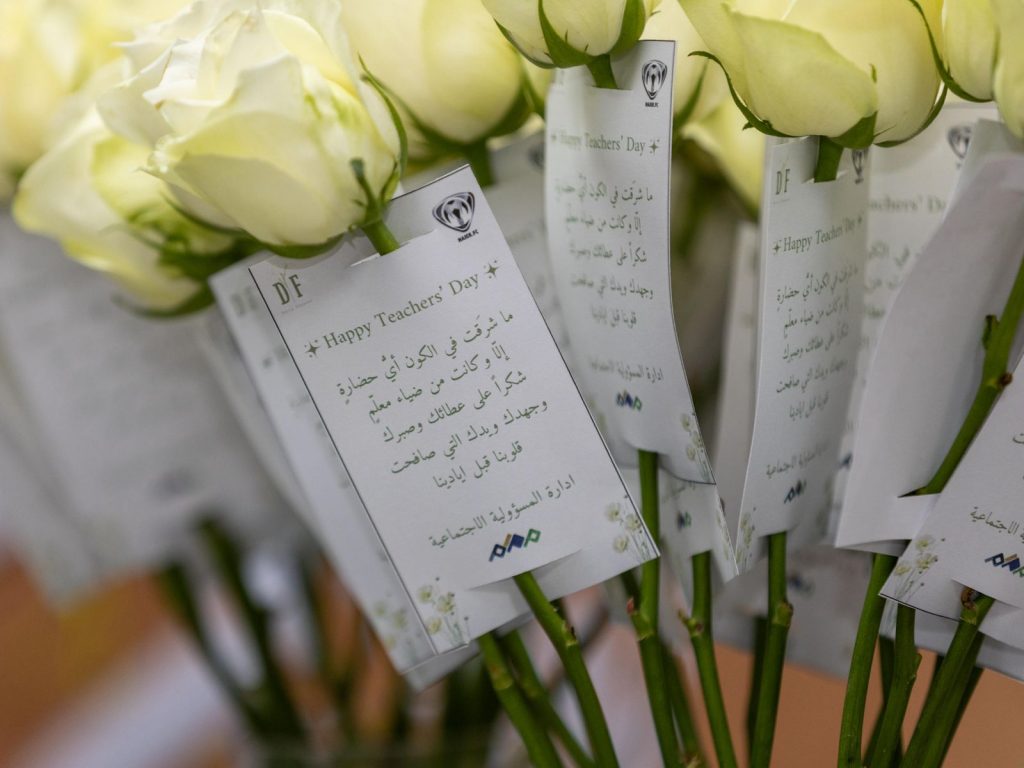 NAJDI.FC
DF
Happy Teachers' Day
ما شرقت في الكون أيُّ حضارةٍ
إلّا وكانت من ضياء معلّمِ
شكراً على عطائك وصبرك
وجهدك ويدك التي صافحت
قلوبنا قبل ايادينا
ادارة المسؤولية الاجتماعية
مهم
Happy Teachers' Day
ما شرقت في الكون أيُّ حضارةٍ
إلّا وكانت من ضياء معلّمٍ
شكراً على عطائك وصبرك
وجهدك ويدك التي صافحت
قلوبنا قبل ايادينا
ادارة المسؤولية الاجتماعية
DF
Happy Teachers' Day
ما شرقت في الكون أيُّ حضارةٍ
إلّا وكانت من ضياء معلّمٍ
شكراً على عطائك وصبرك
وجهدك ويدك التي صافحت
قلوبنا قبل ايادينا
ادارة المسؤولية الاجتماعية
الاجتماعية